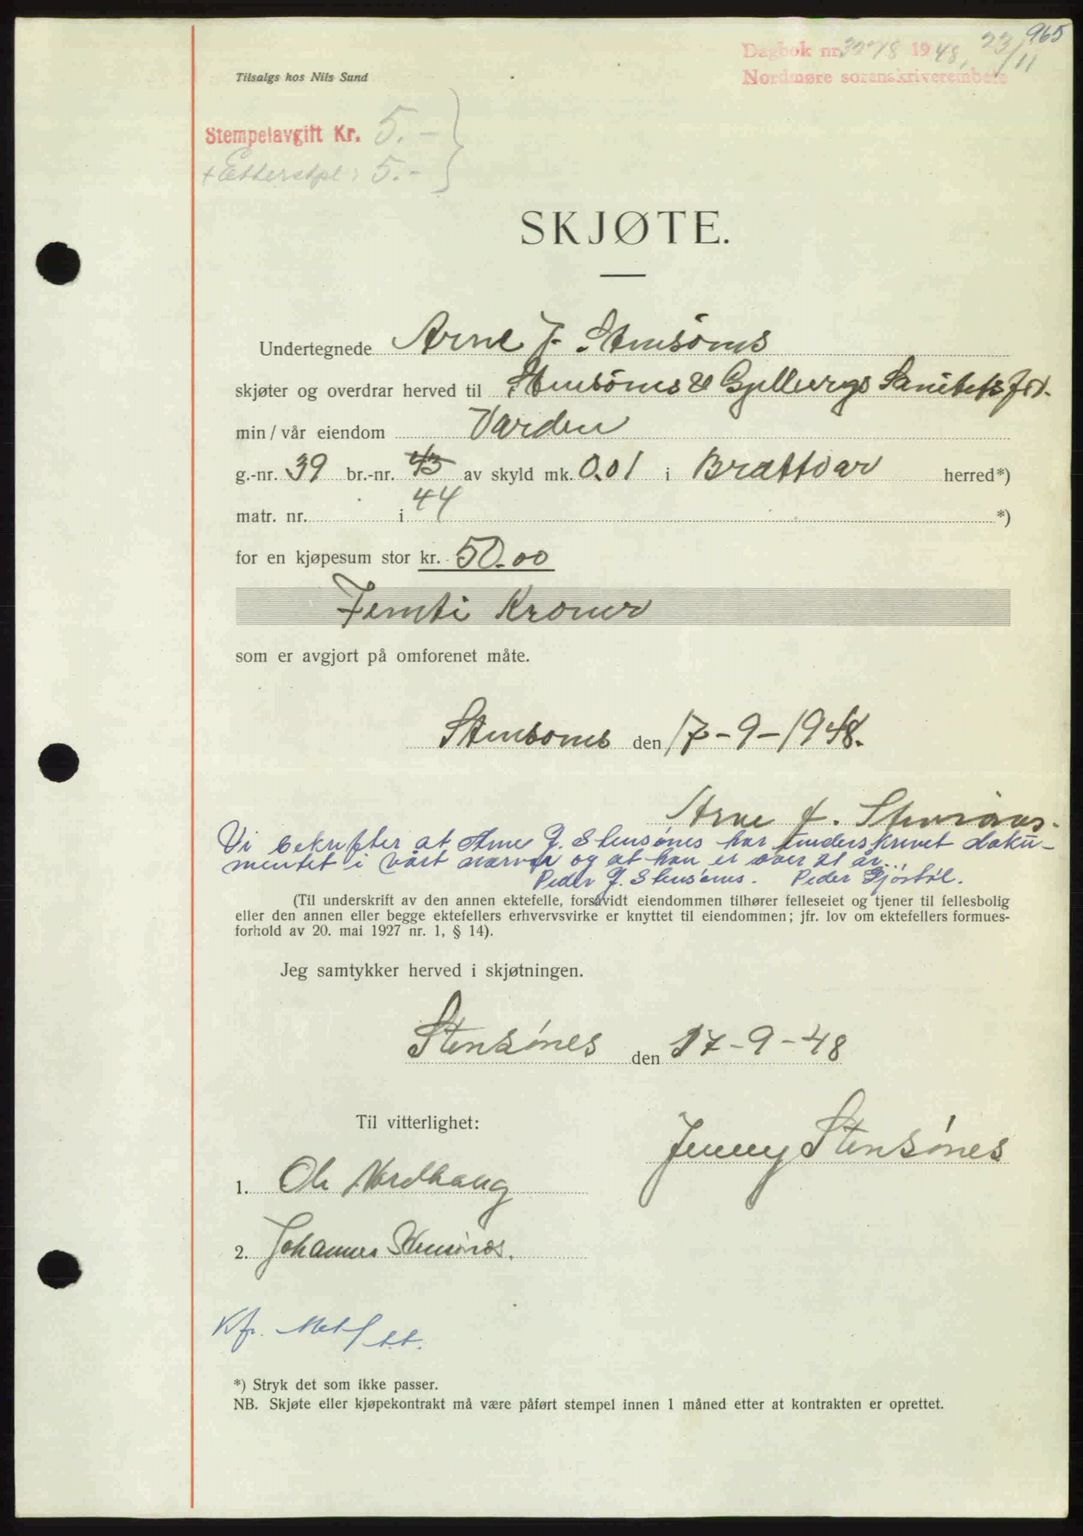 965
Dagbok nr. 3278 1948, 23/11
Nordmøre sorenskriverembete
Tilsalgs hos Nils Sund
Stempelavgift Kr. 5.-
+ Etterstpl: 5.-
SKJØTE.
Undertegnede Arne J. Stensønes
skjøter og overdrar herved til Stensønes & Gjelbergs Sanitetsfor.
min/vår eiendom Varden
g.-nr. 39 br.-nr. 43 av skyld mk. 0.01 i Brattvær herred*)
44
matr. nr. i *)
for en kjøpesum stor kr. 50.00
Femti Kroner
som er avgjort på omforenet måte.
Stensønes den 17-9-1948.
Arne J. Stensønes.
Vi bekrefter at Arne J. Stensønes har underskrevet doku-
mentet i vårt nærvær og at han er over 21 år.
Peder J. Stensønes. Peder Gjøstøl.
(Til underskrift av den annen ektefelle, forsåvidt eiendommen tilhører felleseiet og tjener til fellesbolig
eller den annen eller begge ektefellers erhvervsvirke er knyttet til eiendommen; jfr. lov om ektefellers formues-
forhold av 20. mai 1927 nr. 1, § 14).
Jeg samtykker herved i skjøtningen.
Stensønes den 17-9-48
Til vitterlighet:
Jenny Stensønes
1. Ole Nordhaug
2. Johannes Stensønes.
Kfr.
*) Stryk det som ikke passer.
NB. Skjøte eller kjøpekontrakt må være påført stempel innen 1 måned etter at kontrakten er oprettet.